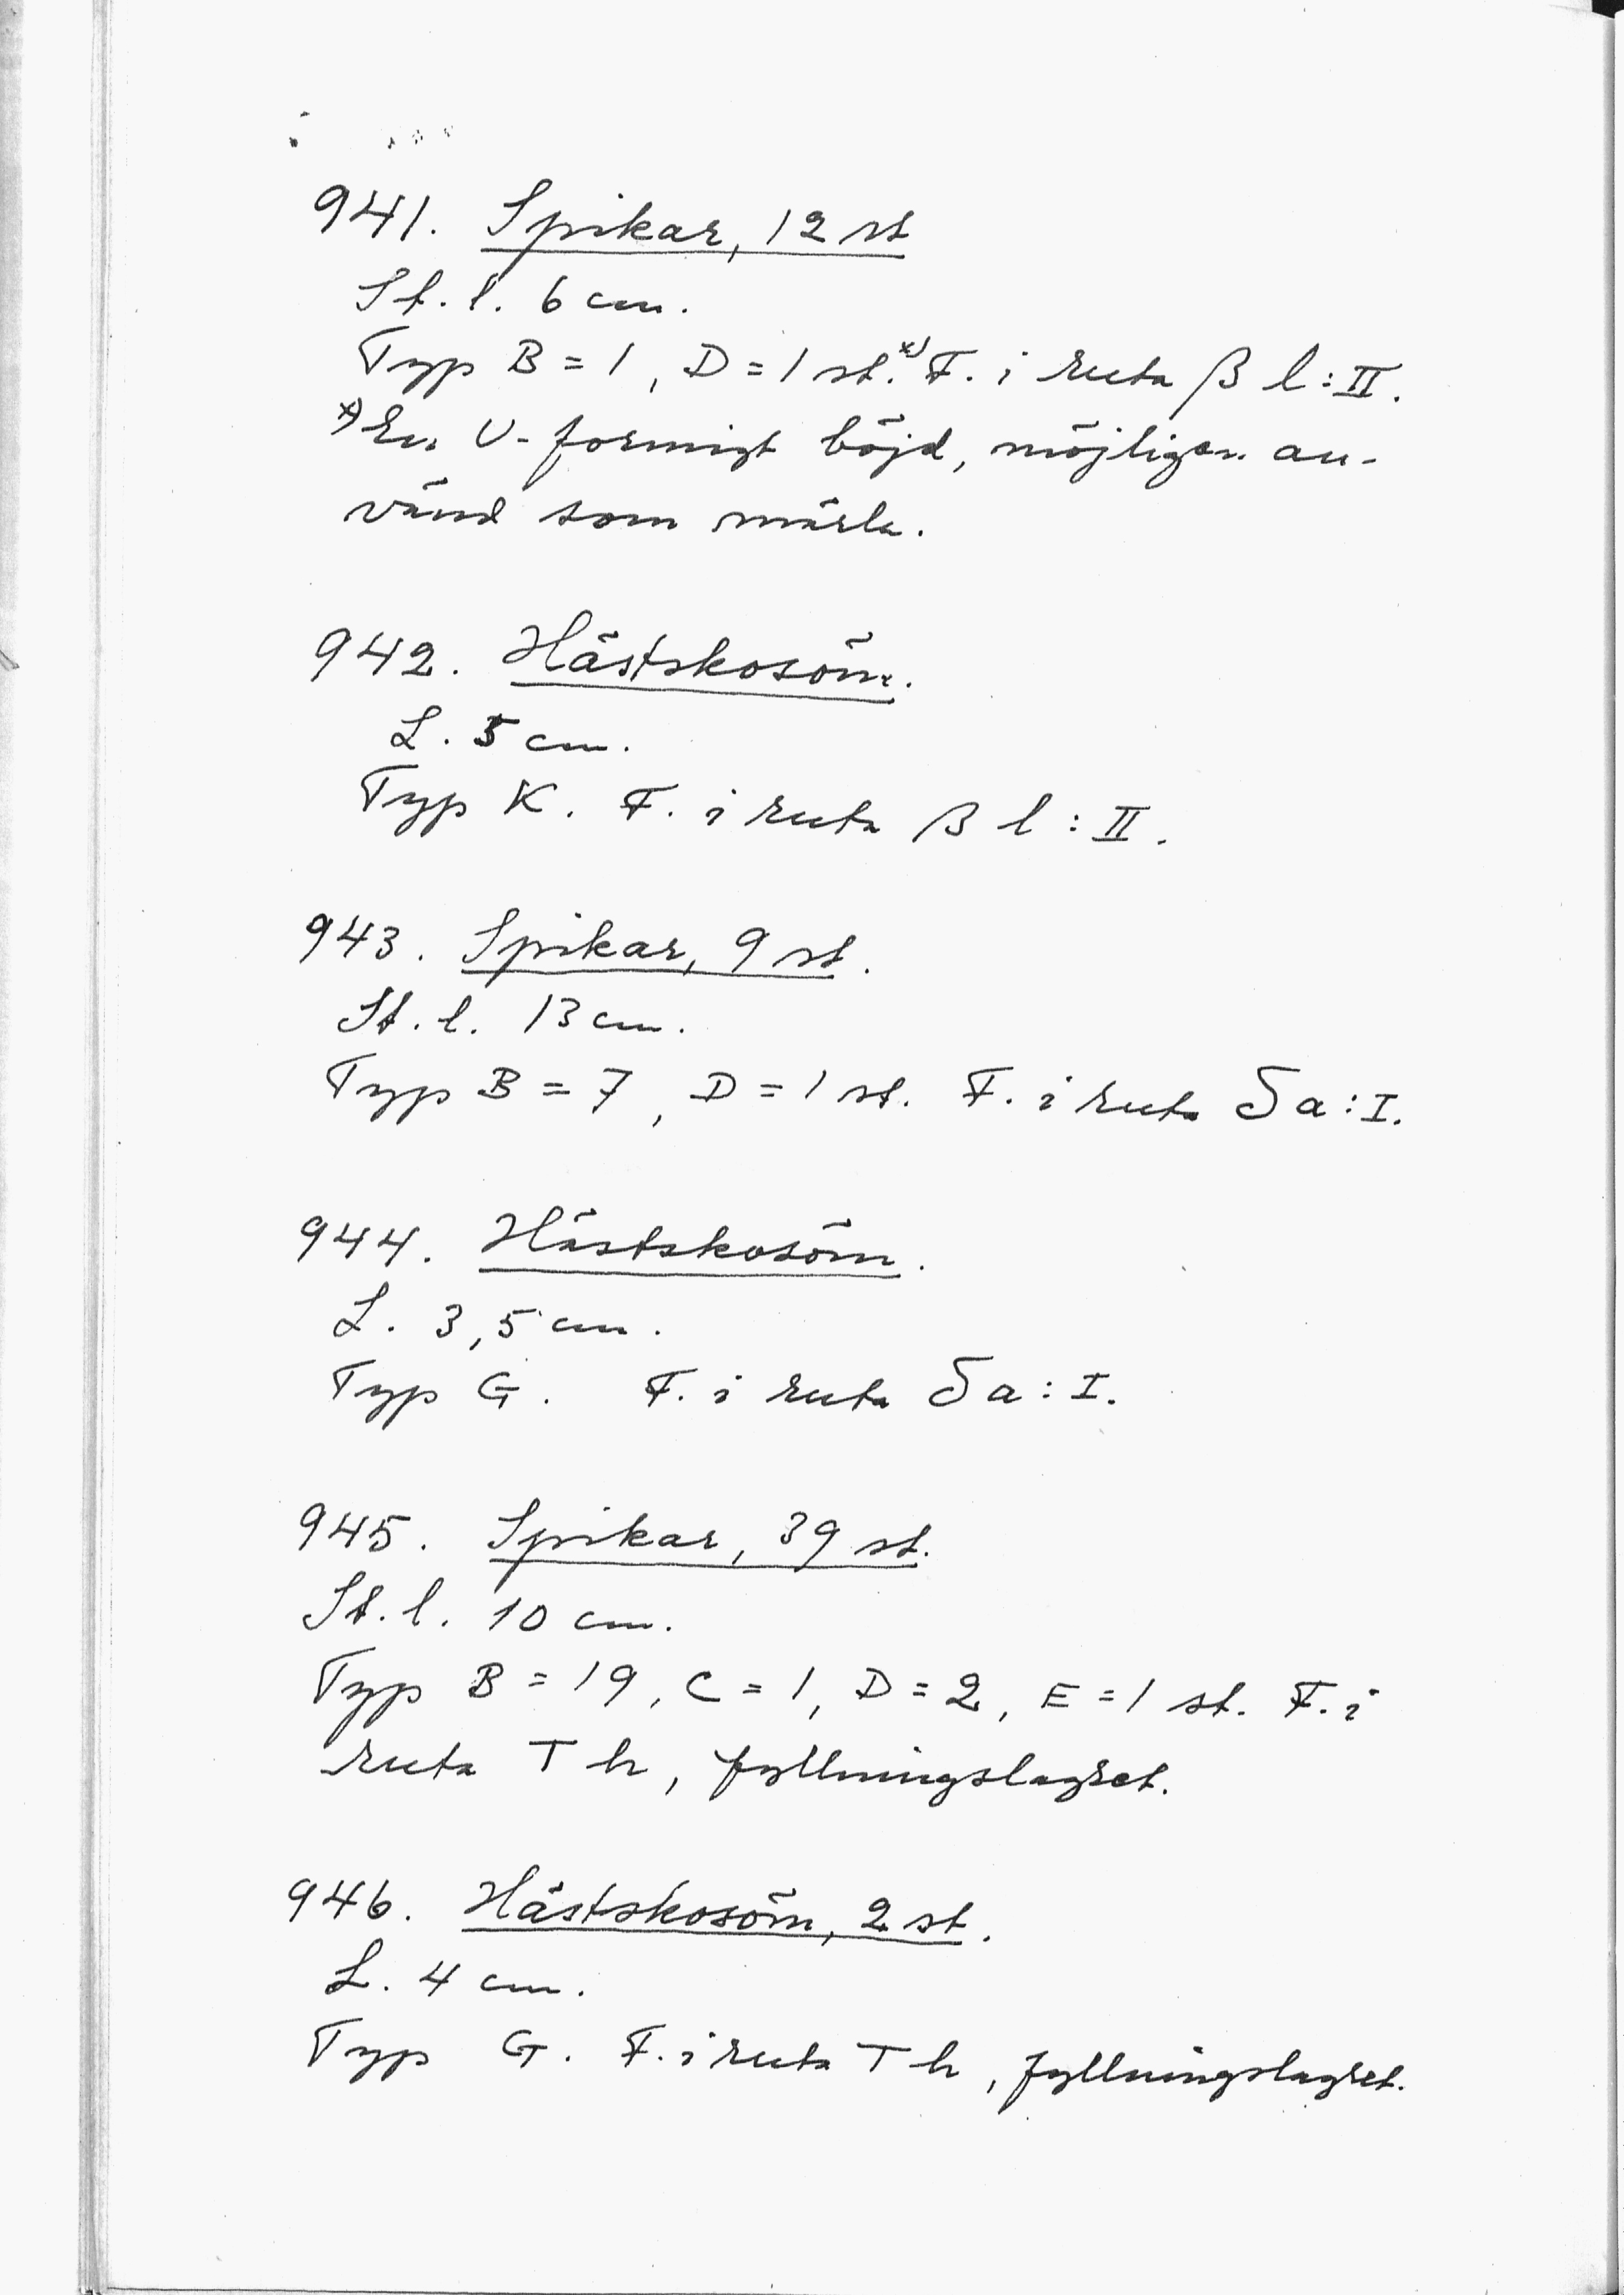 941. Spikar, 12 st
St. l. 6 cm.
Typ B = 1, D = 1 st.*) F. i ruta β l : II.
*) En U-formigt böjd, möjligen an-
vänd som märla.
942. Hästskosöm.
L. 5 cm.
Typ K. F. i ruta β l : II.
943. Spikar, 9 st.
St. l. 13 cm.
Typ B = 7, D = 1 st. F. i ruta δ a : I.
944. Hästskosöm.
L. 3,5 cm.
Typ G. F. i ruta δ a : I.
945. Spikar, 39 st.
St. l. 10 cm.
Typ B = 19, C = 1, D = 2, E = 1 st. F. i
ruta T h, fyllningslagret.
946. Hästskosöm, 2 st.
L. 4 cm.
Typ G. F. i ruta T h, fyllningslagret.